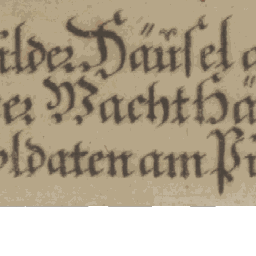 ilder Häusel
er Wacht Hä
oldaten am Pu